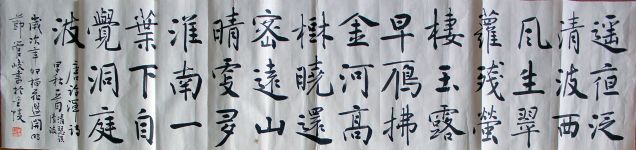 遥夜泛
清波西
风生翠
蘿殘螢
棲玉露
早鴈拂
金河高
樹曉還
密遠山
晴更多
淮南一
葉下自
覺洞庭
波
唐許渾詩
早秋
歲次辛卯梅花盛開時
節管峻書於金陵